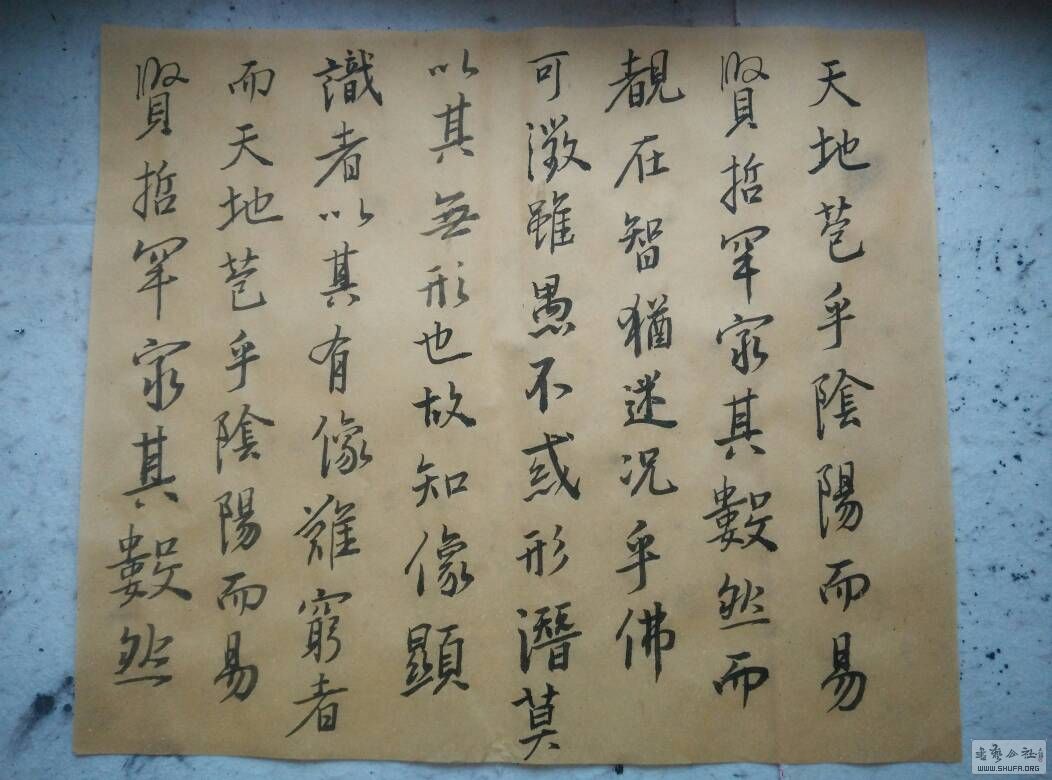 天地苞乎陰陽而易
賢哲罕窮其數然而
覩在智猶迷况乎佛
可澂雖愚不惑形潛莫
以其無形也故知像顯
識者以其有像難窮者
而天地苞乎陰陽而易
賢哲罕窮其數然
WWW.SHUFA.ORG